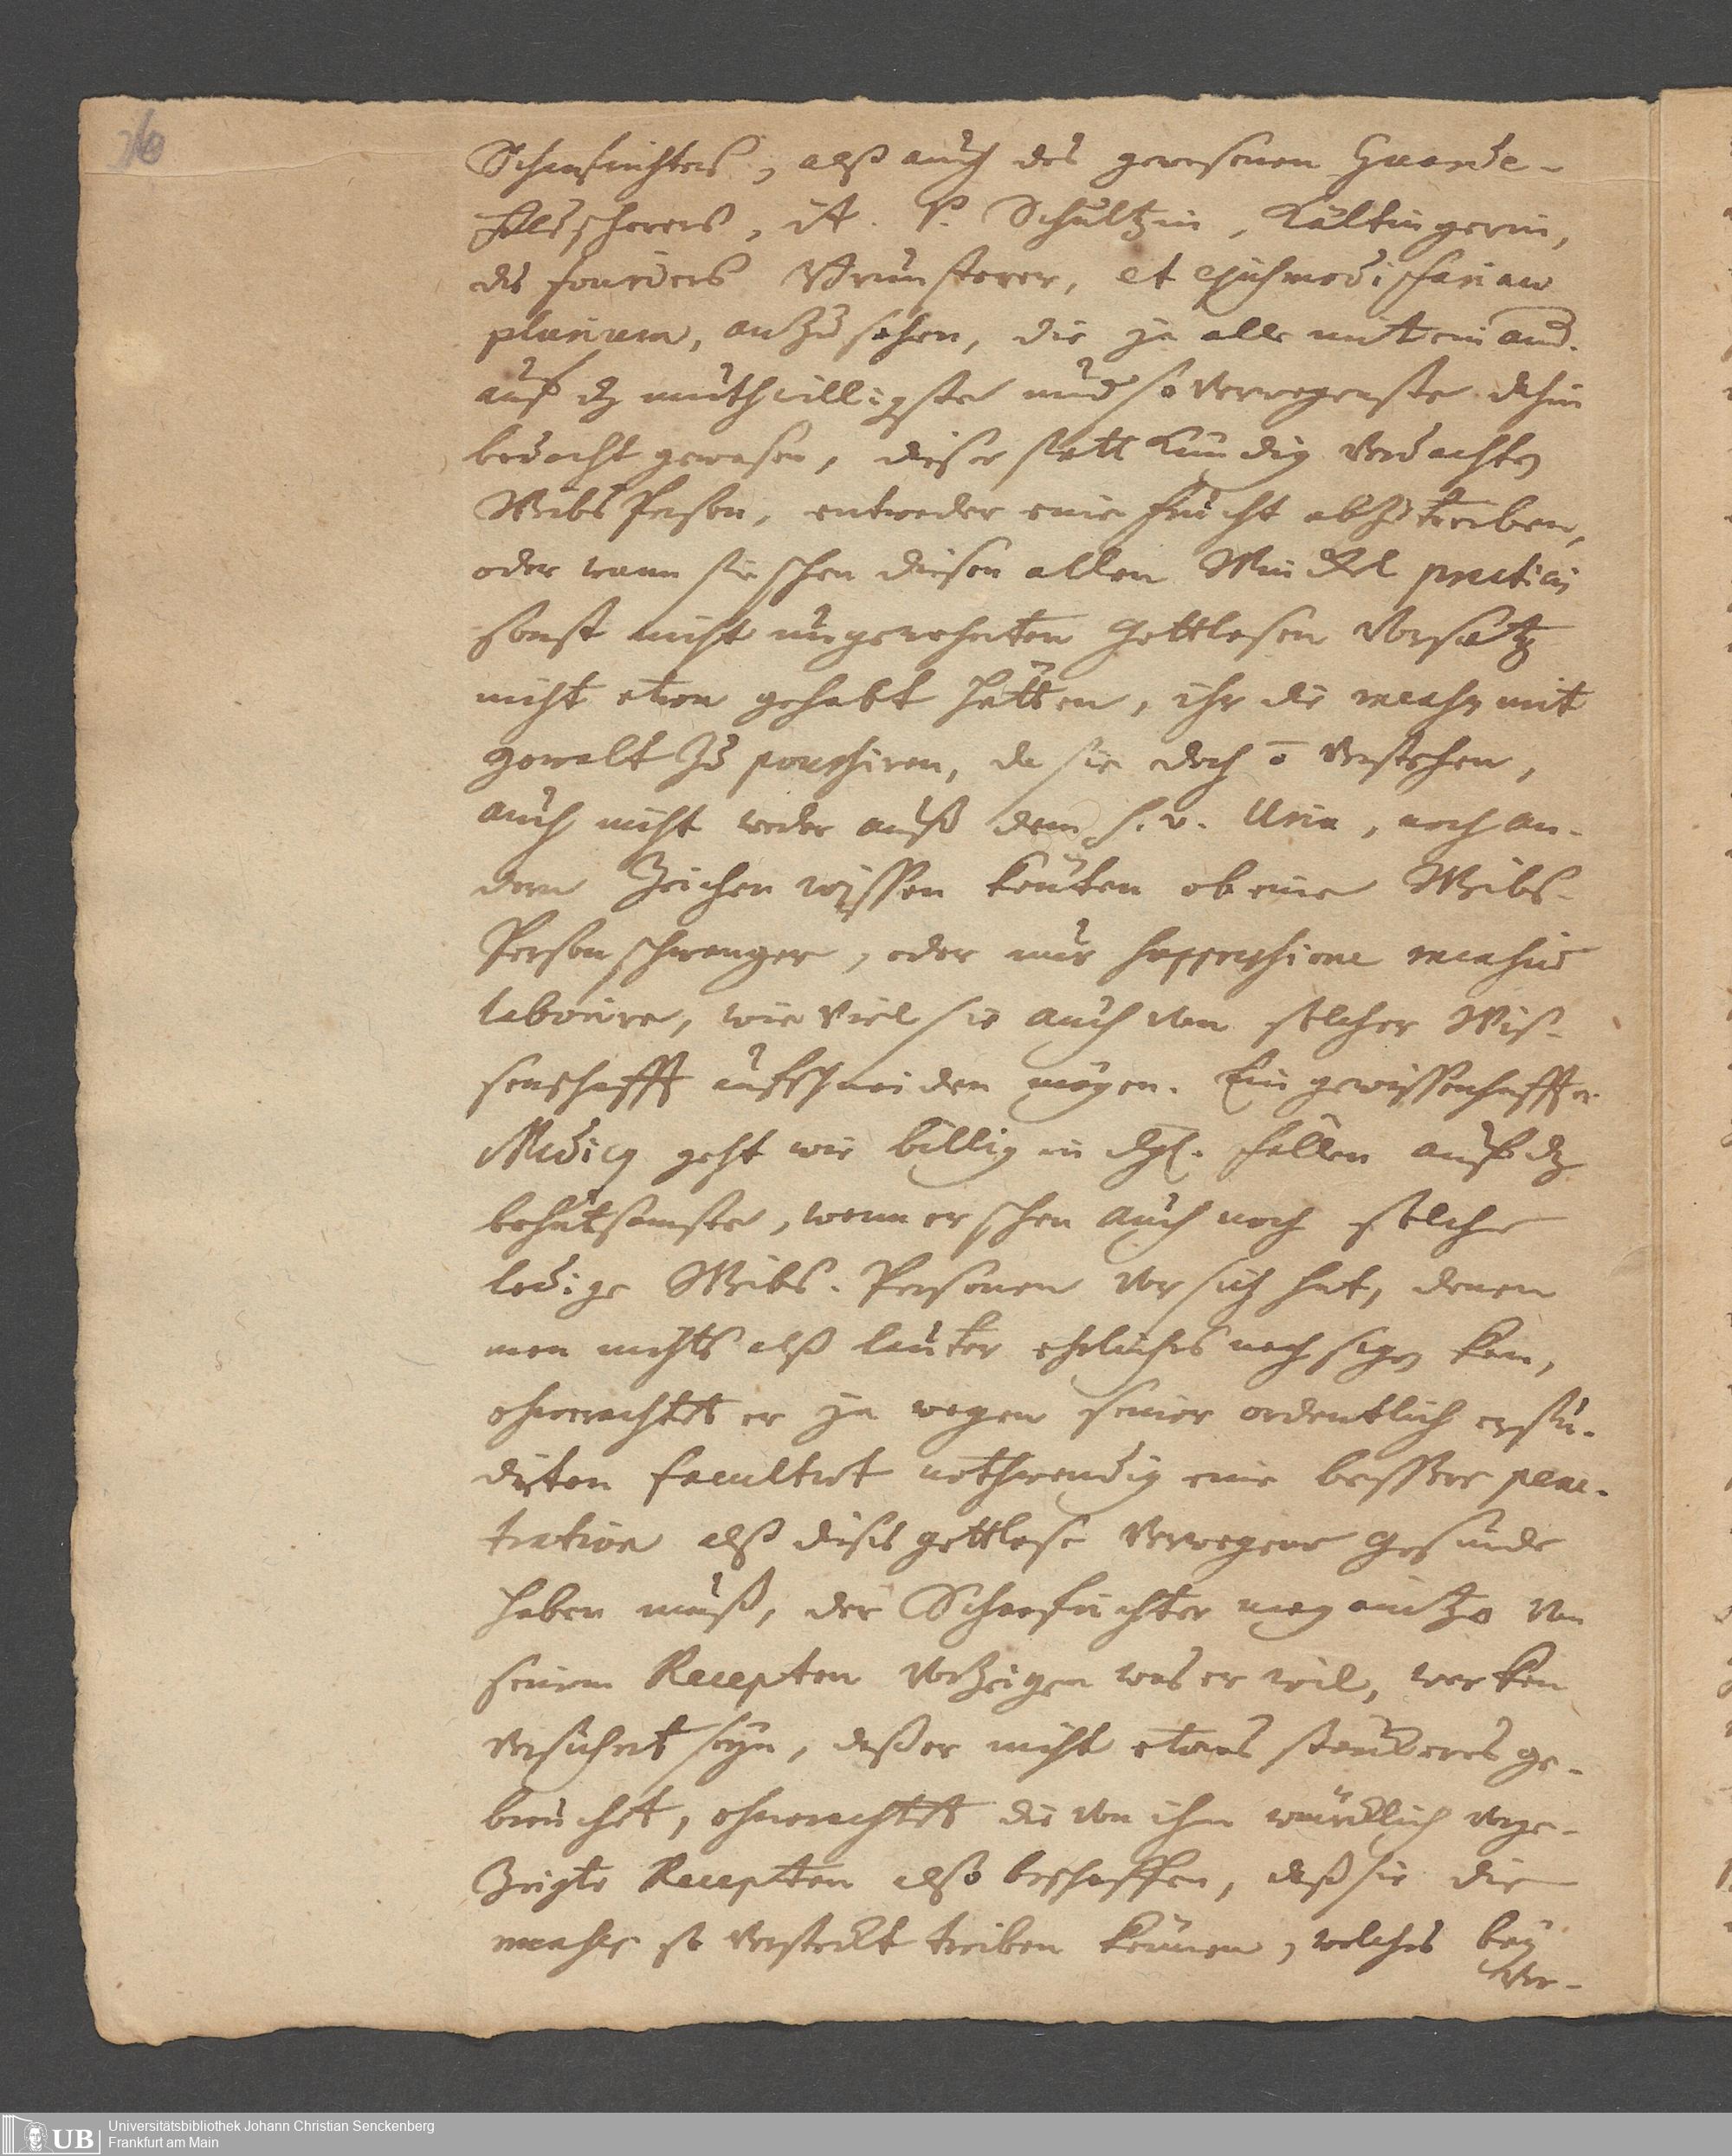 Scharfrichters, alß auch des gewesenen Guarde-
Feldscherers, it. P. Schultzin, Kältingerin,
des fouriers Brunsterer, et ejusmodi farinae
plurium, anzusehen, die ja alle mit einand.
auf dz muthwilligste und so verwegenste dahin
bedacht gewesen, dieser statt Kündig verdachten
Weibs Person, entweder eine frucht abzutreiben,
oder wann sie schon diesen allen Winckel practicis
sonst nicht ungewohnten gottlosen Vorsatz
nicht etwa gehabt hätten, ihr die menses mit
gewalt zu poussiren, da sie doch ō verstehen,
auch nicht weder auß dem s. v. Urin, noch an-
dern Zeichen wissen könten ob eine Weibs-
Person schwanger, oder nur suppressione mensium
laborire, wie viel sie auch von solcher Wis-
senschafft aufschneiden mögen. Ein gewissenhaffter
Medicus geht wie billig in dgl. fällen auf dz
behutsamste, wenn er schon auch noch solche
ledige Weibs-Personen vor sich hat, denen
man nichts alß lauter ehrliches nach sagen kan,
ohnerachtet er ja wegen seiner ordentlich erstu-
dirten facultaet nothwendig eine bessere pene-
tration alß dises gottlose verwegene Gesinde
haben muß, der Scharfrichter mag anitzo von
seinen Recepten vorzeigen was er wil, wer kan
versichert seyn, daß er nicht etwas stärckeres ge-
brauchet, ohnerachtet die von ihm würcklich vorge-
Zeigte Recepten also beschaffen, daß sie die
menses so versteckt treiben können, welches bey
Ver-
Universitätsbibliothek Johann Christian Senckenberg
Frankfurt am Main
UB